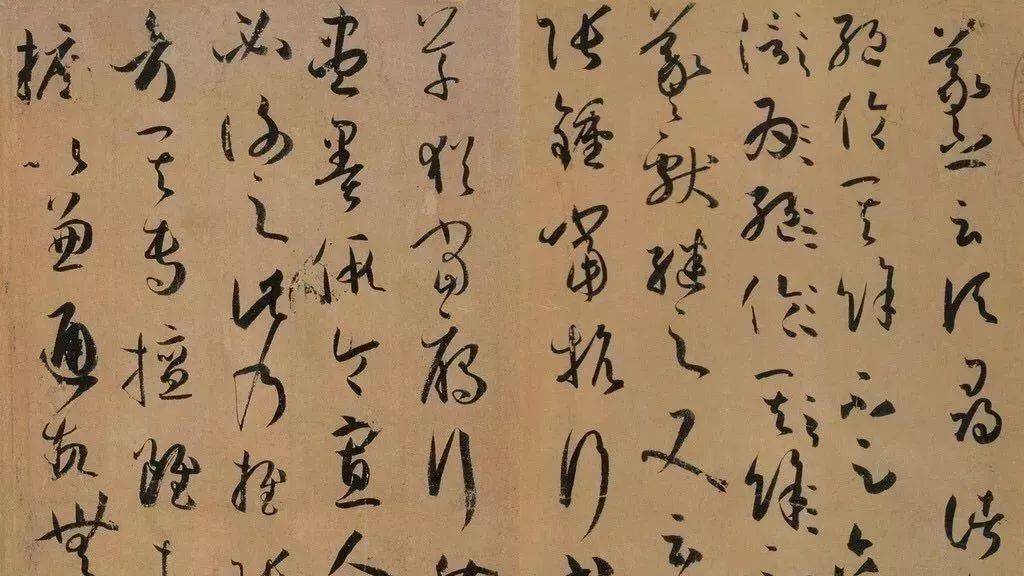 羲之云頃尋諸
絕倫其餘不足觀
為絕倫其餘不
羲獻繼之又云
張鍾當抗行或
草猶當雁行然
盡墨假令寡人
必謝之此乃推張
考其專擅雖
摭以兼通故無